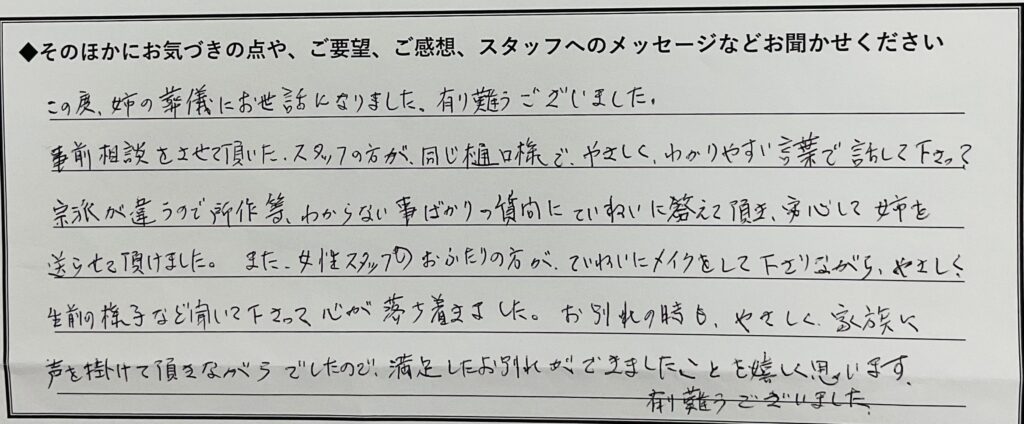 ◆そのほかにお気づきの点や、ご要望、ご感想、スタッフへのメッセージなどお聞かせください
この度、姉の葬儀にお世話になりました、有り難うございました。
事前相談をさせて頂いた、スタッフの方が、同じ樋口様で、やさしく、わかりやすい言葉で話して下さって
宗派が違うので所作等、わからない事ばかりの質問にていねいに答えて頂き、安心して姉を
送らせて頂けました。また、女性スタッフのおふたりの方が、ていねいにメイクをして下さりながら、やさしく
生前の様子など聞いて下さって心が落ち着きました。お別れの時も、やさしく、家族に
声を掛けて頂きながらでしたので、満足したお別れができましたことを嬉しく思います。
有り難うございました。